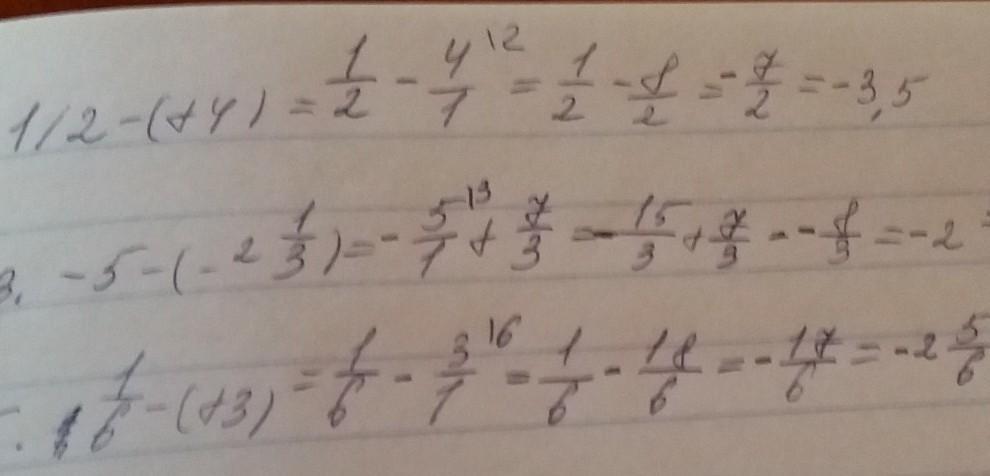 1/2 - (+4) = 1/2 - 4/1 \2 = 1/2 - 8/2 = -7/2 = -3,5
3. -5 - (-2 1/3) = -5/1 \3 + 7/3 = -15/3 + 7/3 = -8/3 = -2
1/6 - (+3) = 1/6 - 3/1 \6 = 1/6 - 18/6 = -17/6 = -2 5/6